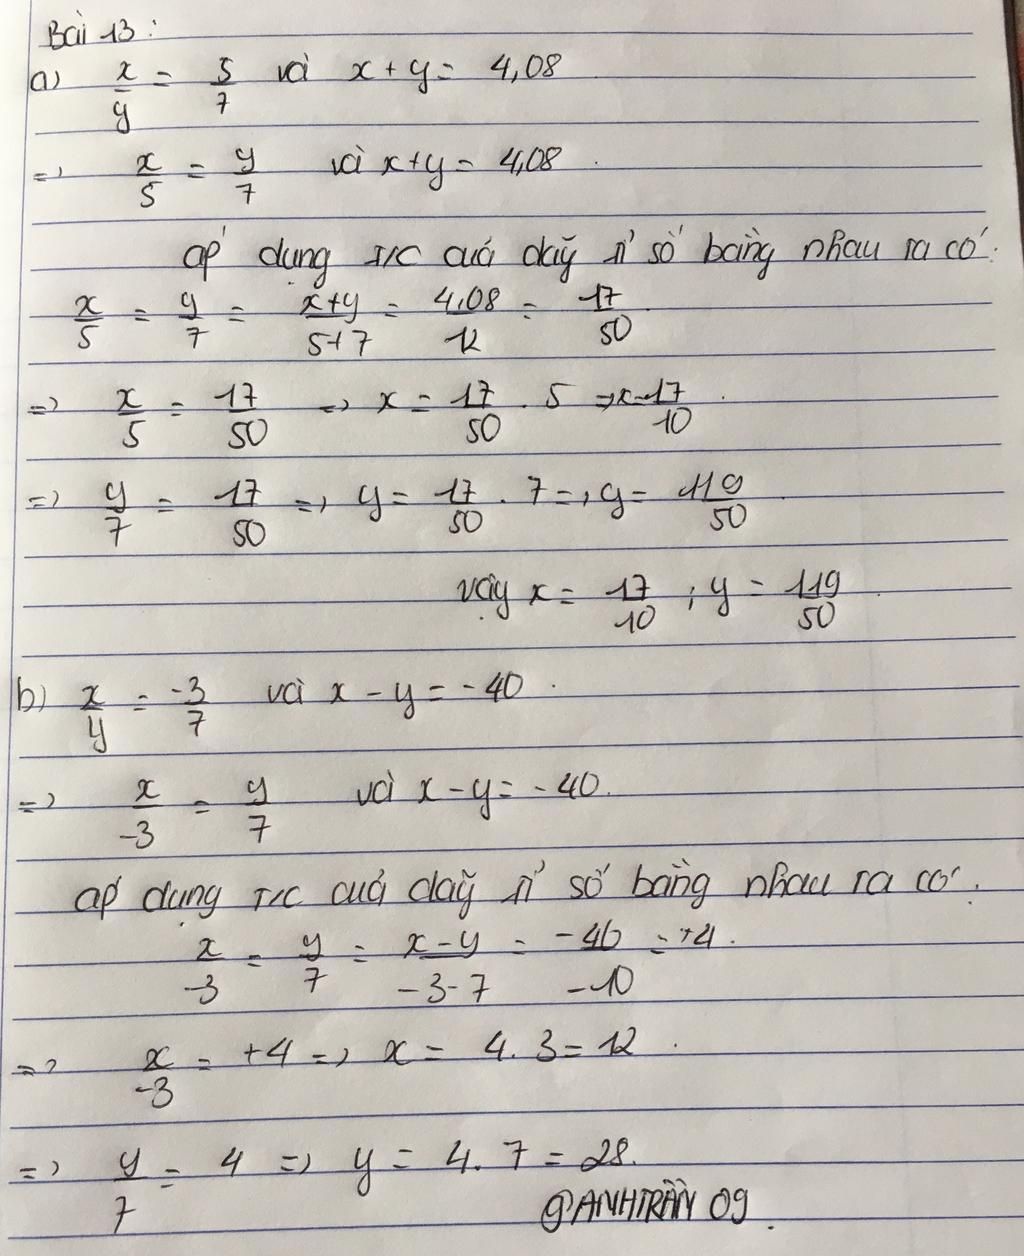 Bài 13:
a) x/y = 5/7 và x + y = 4,08
=> x/5 = y/7 và x + y = 4,08.
áp dụng T/C của dãy tỉ số bằng nhau ta có:
x/5 = y/7 = x+y/5+7 = 4,08/12 = 17/50
=> x/5 = 17/50 => x = 17/50 . 5 => x = 17/10.
=> y/7 = 17/50 => y = 17/50 . 7 => y = 119/50.
vậy x = 17/10 ; y = 119/50.
b) x/y = -3/7 và x - y = -40.
=> x/-3 = y/7 và x - y = -40.
áp dụng T/C của dãy tỉ số bằng nhau ta có:
x/-3 = y/7 = x-y/-3-7 = -40/-10 = +4.
=> x/-3 = +4 => x = 4. 3 = 12.
=> y/7 = 4 => y = 4. 7 = 28.
@ANHTRẦN 09.